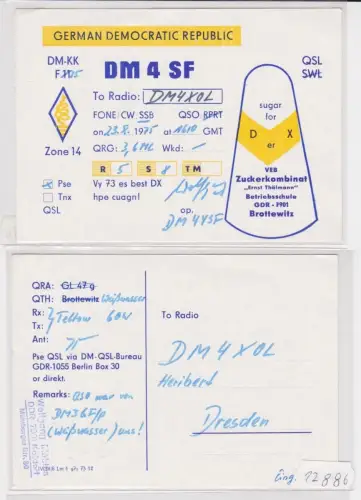 GERMAN DEMOCRATIC REPUBLIC
DM-KK
DM 4 SF
QSL
SWL
To Radio: DM4XOL
FONE CW SSB QSO RPRT
on 23.8.1975 at 1610 GMT
Zone 14
QRG: 3,6 Mc Wkd: —
R 5 S 8 TM
Pse Vy 73 es best DX
Tnx hpe cuagn!
QSL op.
DM4YSF
sugar
for
D X
er
VEB
Zuckerkombinat
„Ernst Thälmann"
Betriebsschule
GDR - 7901
Brottewitz
QRA: GL 47 g
QTH: Brottewitz Weißwasser
Rx: Teltow
Tx:
Ant:
Pse QSL via DM-QSL-Bureau
GDR-1055 Berlin Box 30
or direkt.
Remarks: QSO war von
DM3GF/p
(Weißwasser) aus!
To Radio
DM4XOL
Heribert
Dresden
Eing. 12886